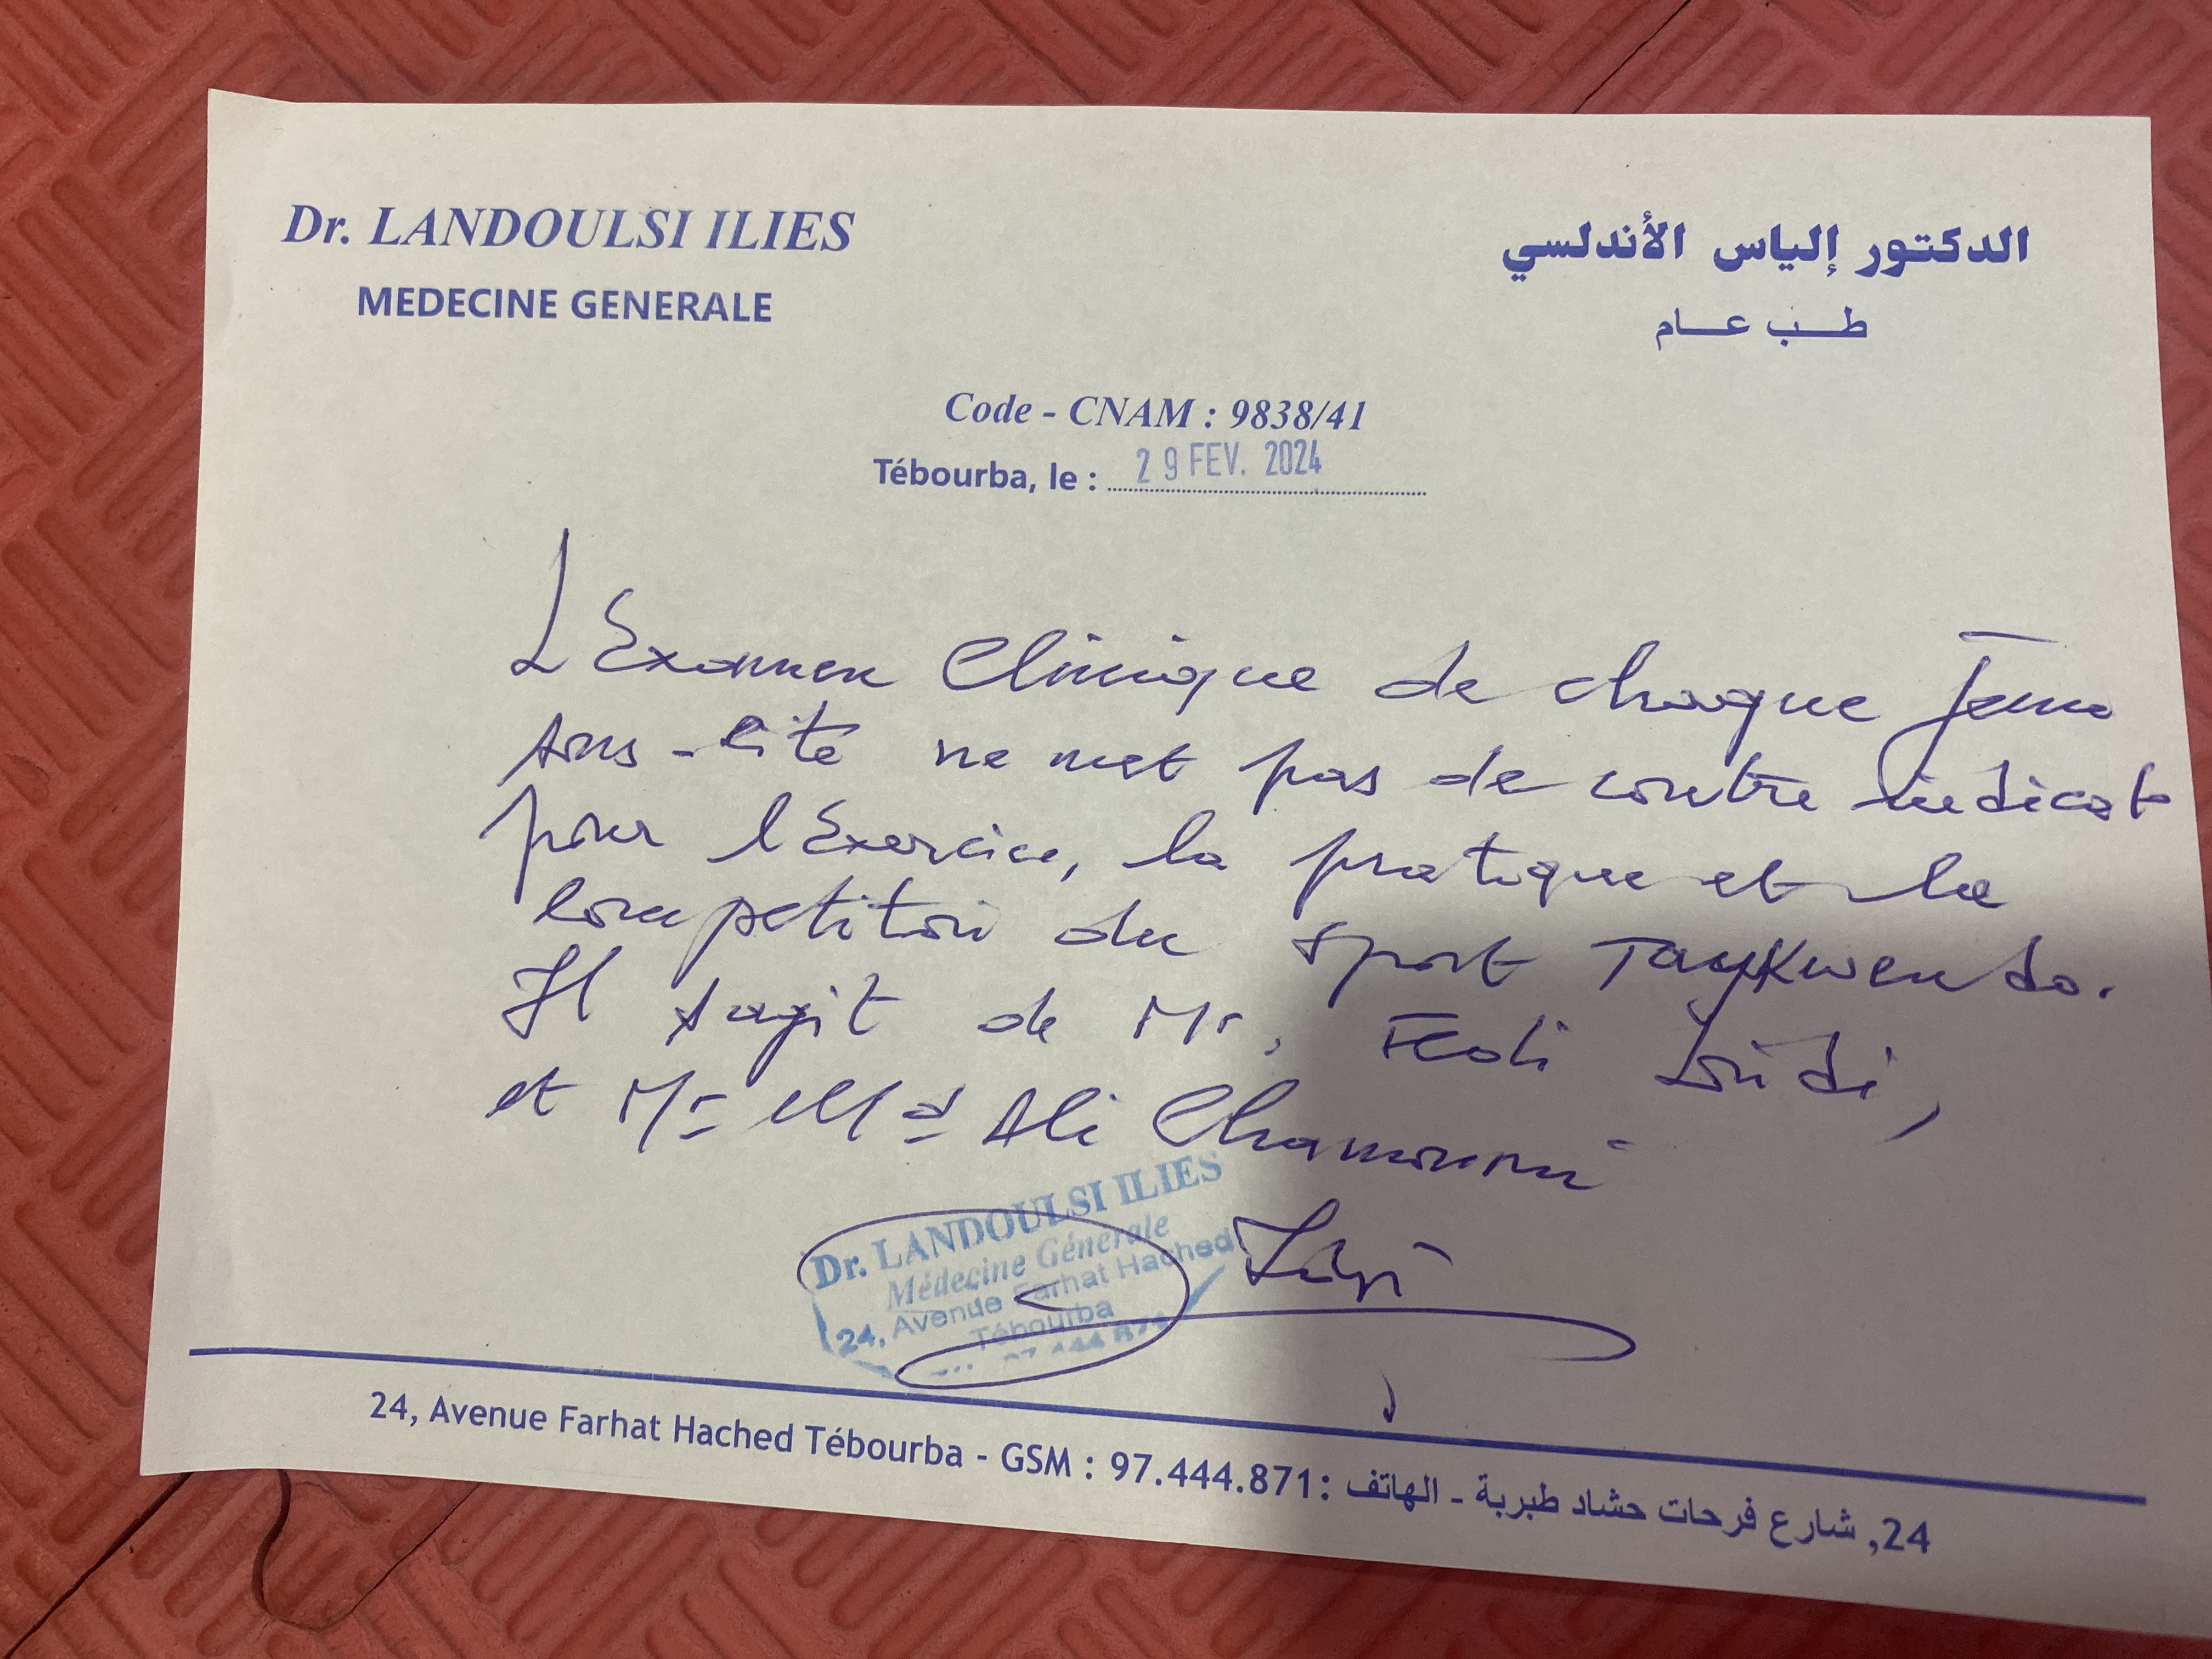 Dr. LANDOULSI ILIES
MEDECINE GENERALE
الدكتور إلياس الأندلسي
طب عام
Code - CNAM : 9838/41
Tébourba, le : 29 FEV. 2024
L'Examen Clinique de chaque
sous-cité ne met pas de contre indicat
pour l'Exercice, la pratique et la
competition du sport Taykwendo.
Il s'agit de Mr, Fedi
et Mr Md Ali
Dr. LANDOULSI ILIES
Médecine Générale
24, Avenue Farhat Hached
Tébourba
97 444 871
24, Avenue Farhat Hached Tébourba - GSM : 97.444.871: 24, شارع فرحات حشاد طبربة - الهاتف